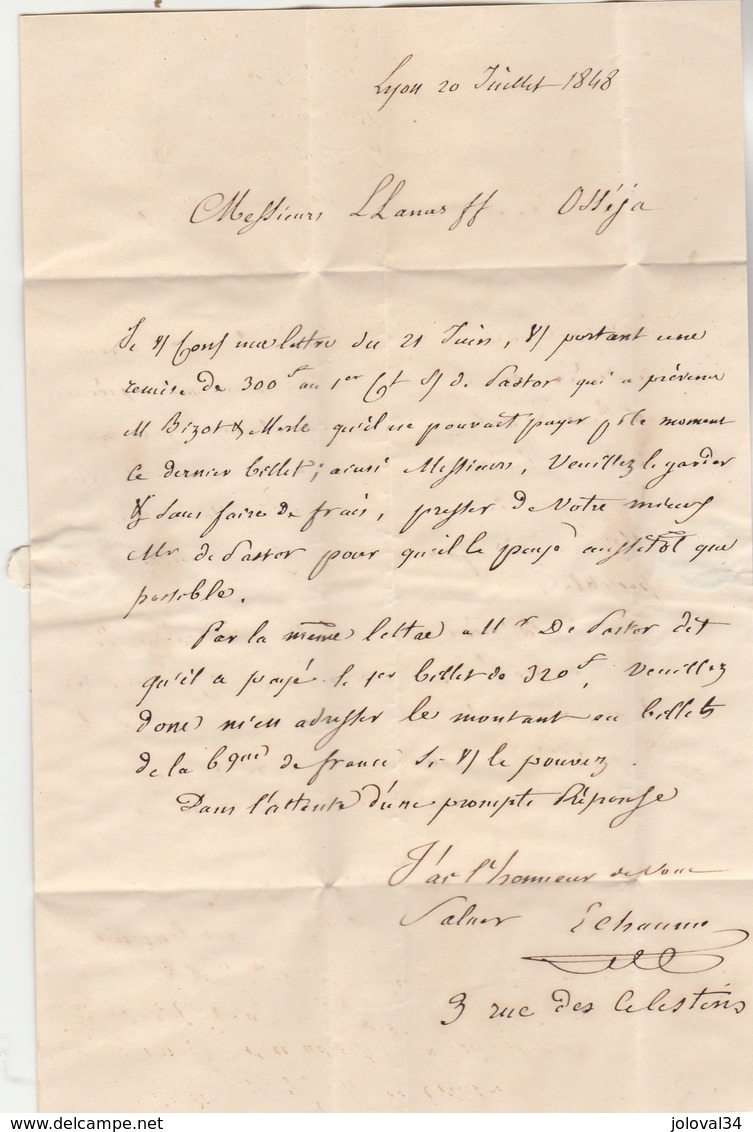 Lyon 20 Juillet 1848
Messieurs LLanas ff Osséja
Je v/ Conf ma lettre du 21 Juin, v/ portant une
remise de 300 f au 1er Ct S/ de Pastor qui a prévenu
M Bizot & Merle qu'il ne pouvait payer p le moment
ce dernier billet; ainsi Messieurs, Veuillez le garder
& sans faire de frais, presser de Votre mieux
Mr de Pastor pour qu'il le paye aussitôt que
possible.
Par la même lettre Mr De Pastor dit
qu'il a payé le 1er billet de 320 f, Veuillez
donc m'en adresser le montant en billets
de la bque de france si v/ le pouvez.
Dans l'attente d'une prompte Réponse
J'ai l'honneur de Vous
Saluer EChaume
3 rue des Celestins
joloval34